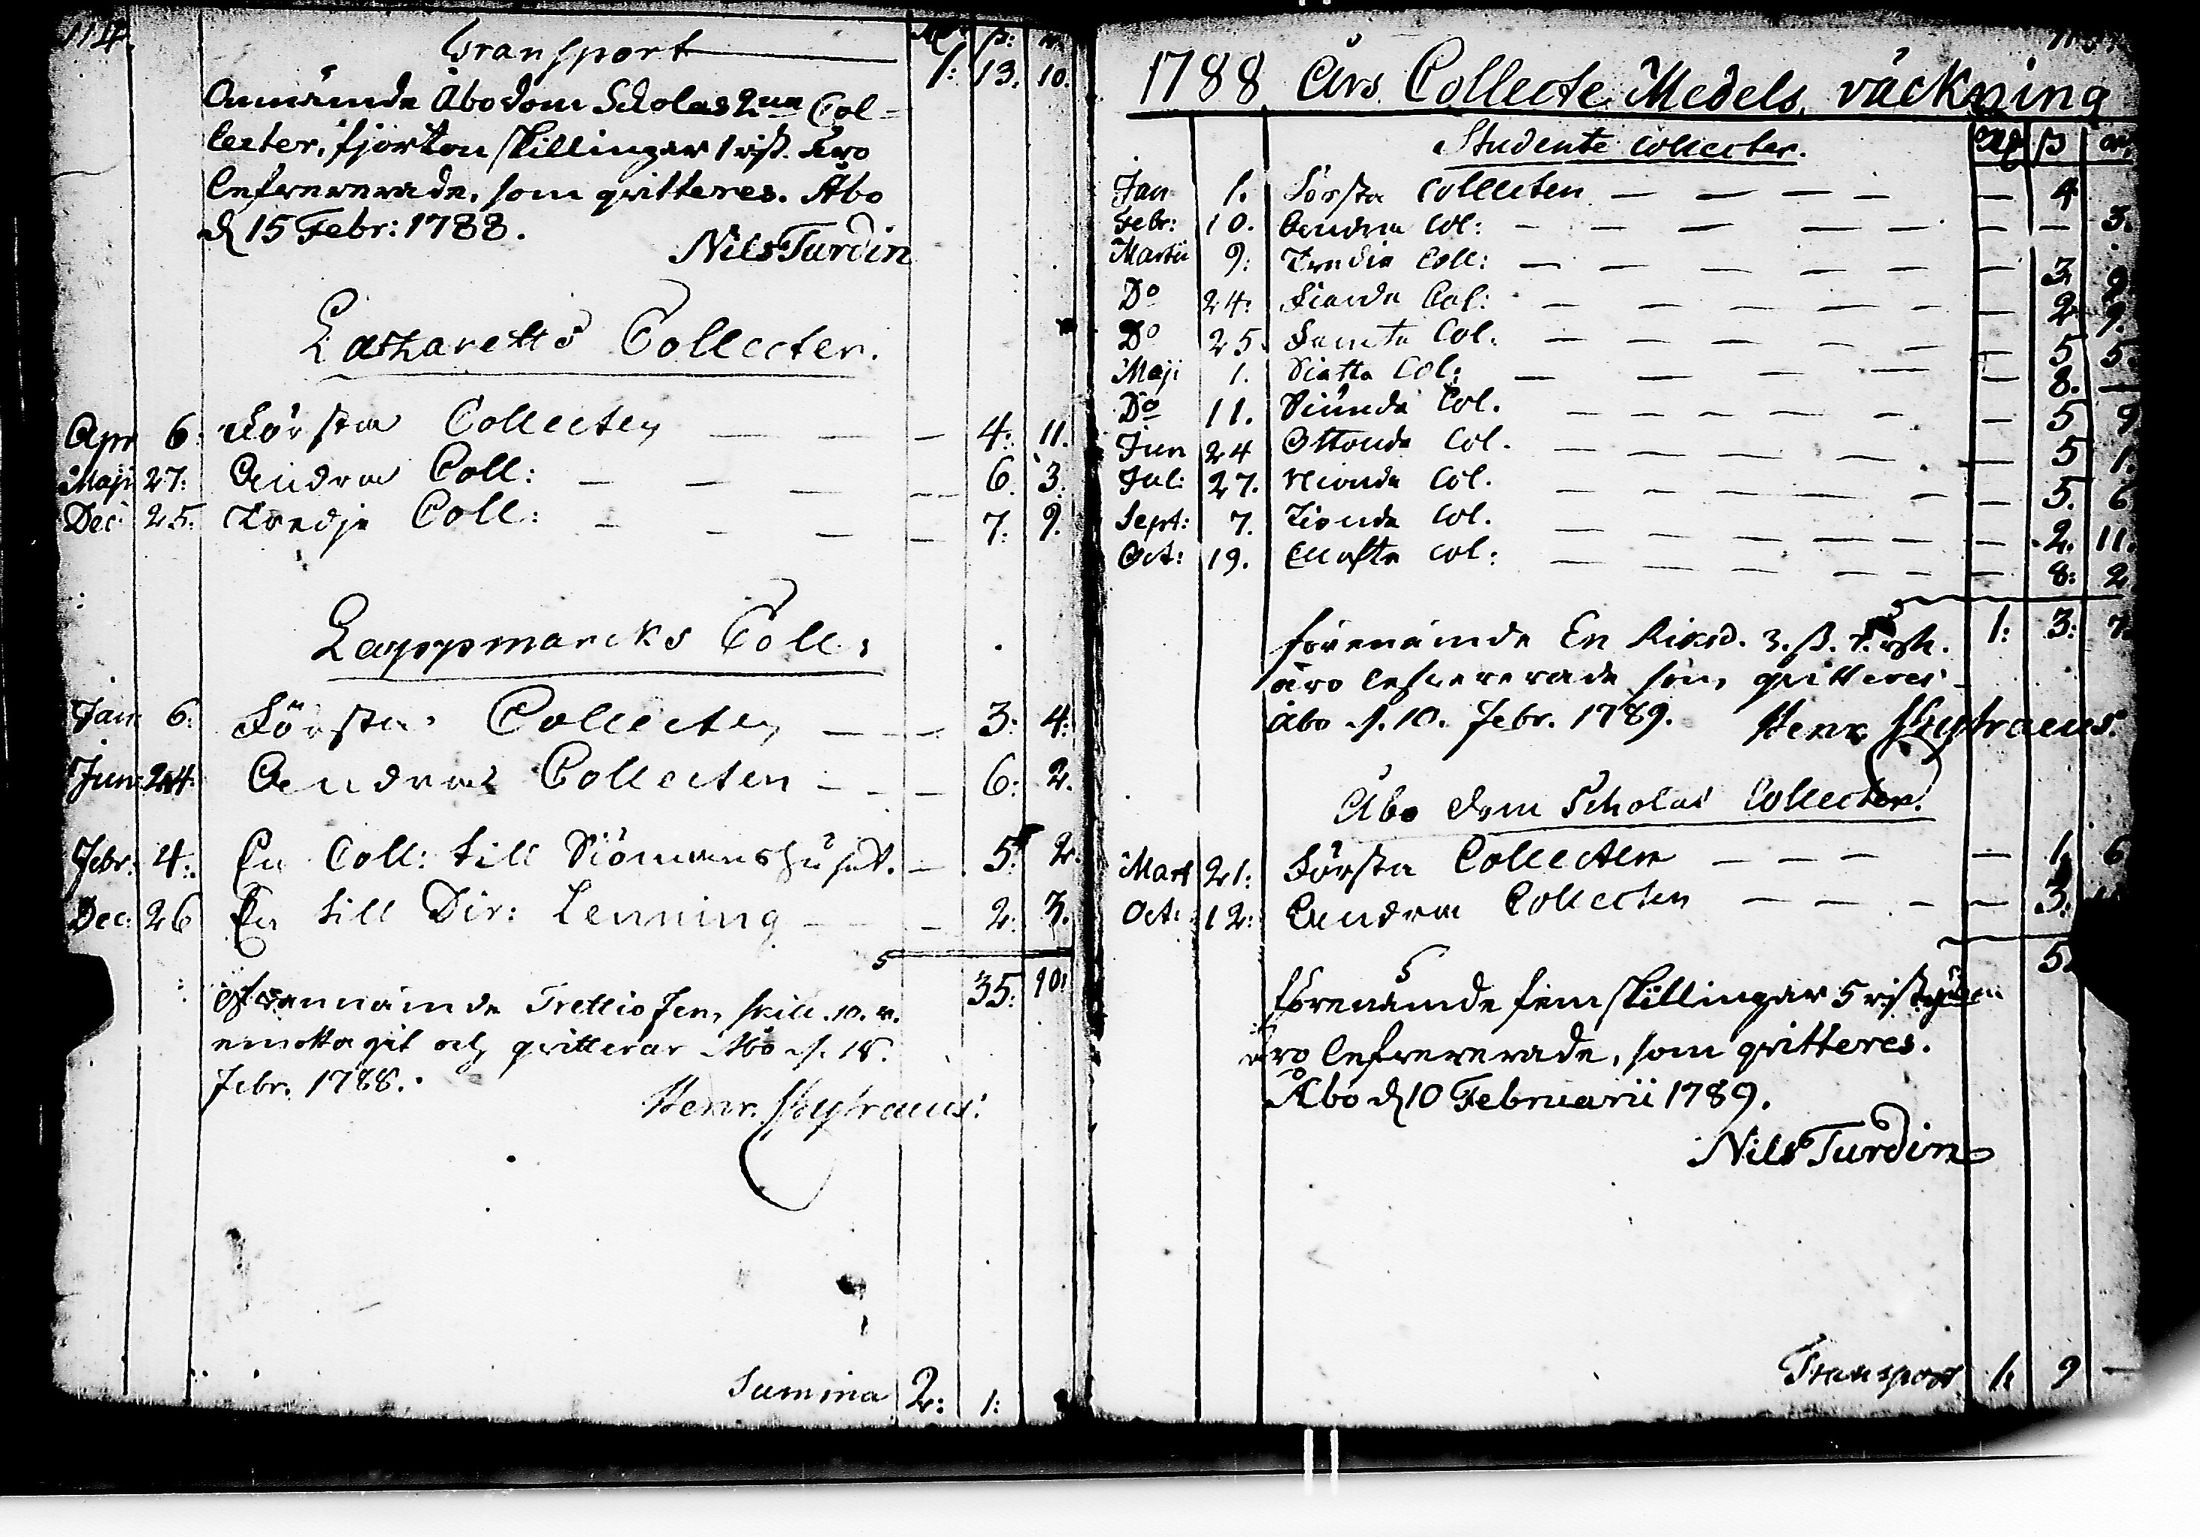 114.
Rdr ß: r.
Transport 1: 13. 10.
Onnämnde Åbo dom Scholas 2ne Col-
lecter, fjorton skillingar 1 rst. äro
lefwererade, som qvitteres. Åbo
d 15 Febr: 1788.
Nils Turdin
Latzaretts Collecter.
Apr 6: Första Collecten — — — 4: 11.
Maji 27: Andra Coll: — — — 6. 3:
Dec: 25: Tredje Coll: — — — 7: 9.
Lappmarcks Coll:
Jan 6: Första Collecten — — 3: 4:
Jun: 24: Andra Collecten — — — 6: 2.
Febr: 4: En Coll: till Siömanshuset. — 5: 2:
Dec: 26 En till Dir: Lenning — — 2: 3.
35: 10:
Ofvannämnde Trettio fem skill. 10. r.
emottagit och qvitterar Åbo d. 18.
Febr. 1788.
Henr.
Summa 2: 1:
1788 Års Collecte Medels räckning
Studente Collecter. Rdr ß r
Jan 1. Första Collecten — — — — — 4
Febr: 10. Andra Col: — — — — — — — 3.
Martii 9: Tredie Coll: — — — — — 3 9
Do 24: Fierde Col: — — — — — 2 9.
Do 25. Femte Col. — — — — — 5 5.
Maji 1. Siette Col: — — — — — 8. —
Do 11. Siunde Col. — — — — — 5 9
Jun 24 Ottonde Col. — — — — — 5 1.
Jul: 27. Nionde Col. — — — — — 5. 6
Sept: 7. Tionde Col. — — — — — 2. 11.
Oct: 19. Ellofte Col: — — — — — 8: 2
förenämde En Riksd. 3. ß. 7. rst. 1: 3: 7.
äro lefvererade som qvitteres
Åbo d. 10. Febr. 1789. Henr.
Åbo dom Scholas Collecter.
Mart 21: Första Collecten — — — — 1. 6
Oct: 12: Andra Collecten — — — — 3:
5.
förenämde fem skillingar 5 rst
äro lefvererade, som qvitteres.
Åbo d 10 Februarii 1789.
Nils Turdin
Transport 1: 9 —